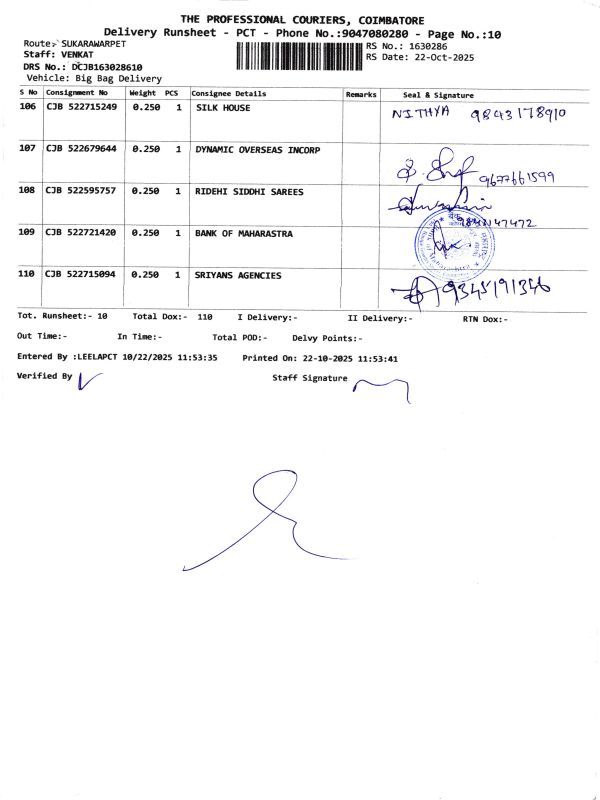 THE PROFESSIONAL COURIERS, COIMBATORE
Delivery Runsheet - PCT - Phone No.:9047080280 - Page No.:10
Route:- SUKARAWARPET
RS No.: 1630286
Staff: VENKAT
RS Date: 22-Oct-2025
DRS No.: DCJB163028610
Vehicle: Big Bag Delivery
S No Consignment No Weight PCS Consignee Details Remarks Seal & Signature
106 CJB 522715249 0.250 1 SILK HOUSE NITHYA 9843178910
107 CJB 522679644 0.250 1 DYNAMIC OVERSEAS INCORP
9677661599
108 CJB 522595757 0.250 1 RIDEHI SIDDHI SAREES
109 CJB 522721420 0.250 1 BANK OF MAHARASTRA
110 CJB 522715094 0.250 1 SRIYANS AGENCIES
9345191346
Tot. Runsheet:- 10 Total Dox:- 110 I Delivery:- II Delivery:- RTN Dox:-
Out Time:- In Time:- Total POD:- Delvy Points:-
Entered By :LEELAPCT 10/22/2025 11:53:35 Printed On: 22-10-2025 11:53:41
Verified By Staff Signature